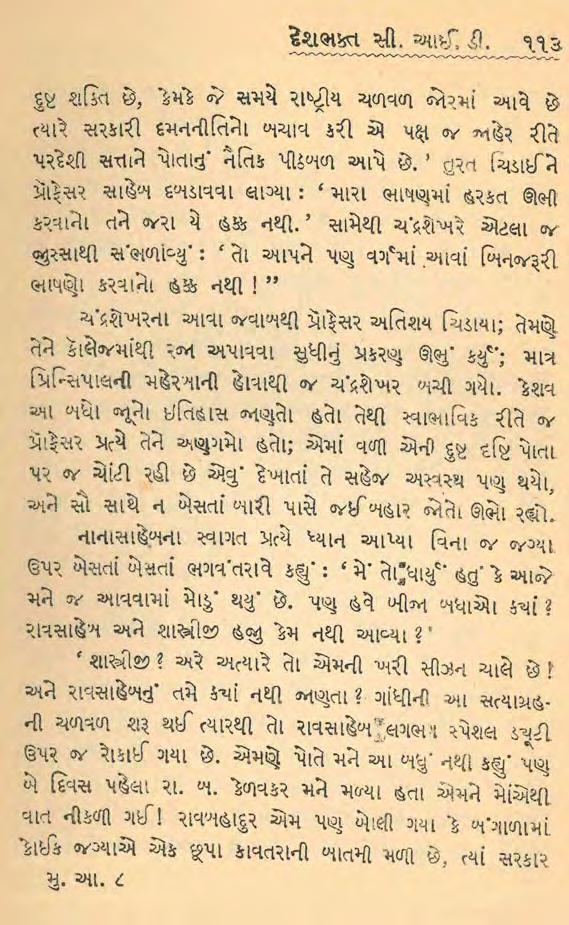 દેશભક્ત સી. આઈ. ડી. ૧૧૩
દુષ્ટ શક્તિ છે, કેમકે જે સમયે રાષ્ટ્રીય ચળવળ જોરમાં આવે છે
ત્યારે સરકારી દમનનીતિનો બચાવ કરી એ પક્ષ જ જાહેર રીતે
પરદેશી સત્તાને પોતાનું નૈતિક પીઠબળ આપે છે.’ તુરત ચિડાઈને
પ્રોફેસર સાહેબ દબડાવવા લાગ્યા : ‘મારા ભાષણમાં હરકત ઊભી
કરવાનો તને જરા યે હક્ક નથી.’ સામેથી ચંદ્રશેખરે એટલા જ
જુસ્સાથી સંભળાવ્યું : ‘તો આપને પણ વર્ગમાં આવાં બિનજરૂરી
ભાષણો કરવાનો હક્ક નથી !”
ચંદ્રશેખરના આવા જવાબથી પ્રોફેસર અતિશય ચિડાયા; તેમણે
તેને કૉલેજમાંથી રજા અપાવવા સુધીનું પ્રકરણ ઊભું કર્યું; માત્ર
પ્રિન્સિપાલની મહેરબાની હોવાથી જ ચંદ્રશેખર બચી ગયો. કેશવ
આ બધો જૂનો ઇતિહાસ જાણતો હતો તેથી સ્વાભાવિક રીતે જ
પ્રોફેસર પ્રત્યે તેને અણગમો હતો; એમાં વળી એની દુષ્ટ દૃષ્ટિ પોતા
પર જ ચોંટી રહી છે એવું દેખાતાં તે સહેજ અસ્વસ્થ પણ થયો,
અને સૌ સાથે ન બેસતાં બારી પાસે જઈ બહાર જોતો ઊભો રહ્યો.
નાનાસાહેબના સ્વાગત પ્રત્યે ધ્યાન આપ્યા વિના જ જગ્યા
ઉપર બેસતાં બેસતાં ભગવંતરાવે કહ્યું : ‘મેં તો ધાર્યું હતું કે આજે
મને જ આવવામાં મોડું થયું છે. પણ હવે બીજા બધાઓ ક્યાં ?
રાવસાહેબ અને શાસ્ત્રીજી હજુ કેમ નથી આવ્યા ?’
‘શાસ્ત્રીજી ? અરે અત્યારે તો એમની ખરી સીઝન ચાલે છે !
અને રાવસાહેબનું તમે ક્યાં નથી જાણતા ? ગાંધીની આ સત્યાગ્રહ-
ની ચળવળ શરૂ થઈ ત્યારથી તો રાવસાહેબ લગભગ સ્પેશલ ડ્યૂટી
ઉપર જ રોકાઈ ગયા છે. એમણે પોતે મને આ બધું નથી કહ્યું પણ
બે દિવસ પહેલા રા. બ. કેળવકર મને મળ્યા હતા એમને મોંએથી
વાત નીકળી ગઈ! રાવબહાદુર એમ પણ બોલી ગયા કે બંગાળામાં
કોઈક જગ્યાએ એક છૂપા કાવતરાની બાતમી મળી છે, ત્યાં સરકાર
મુ. આ. ૮